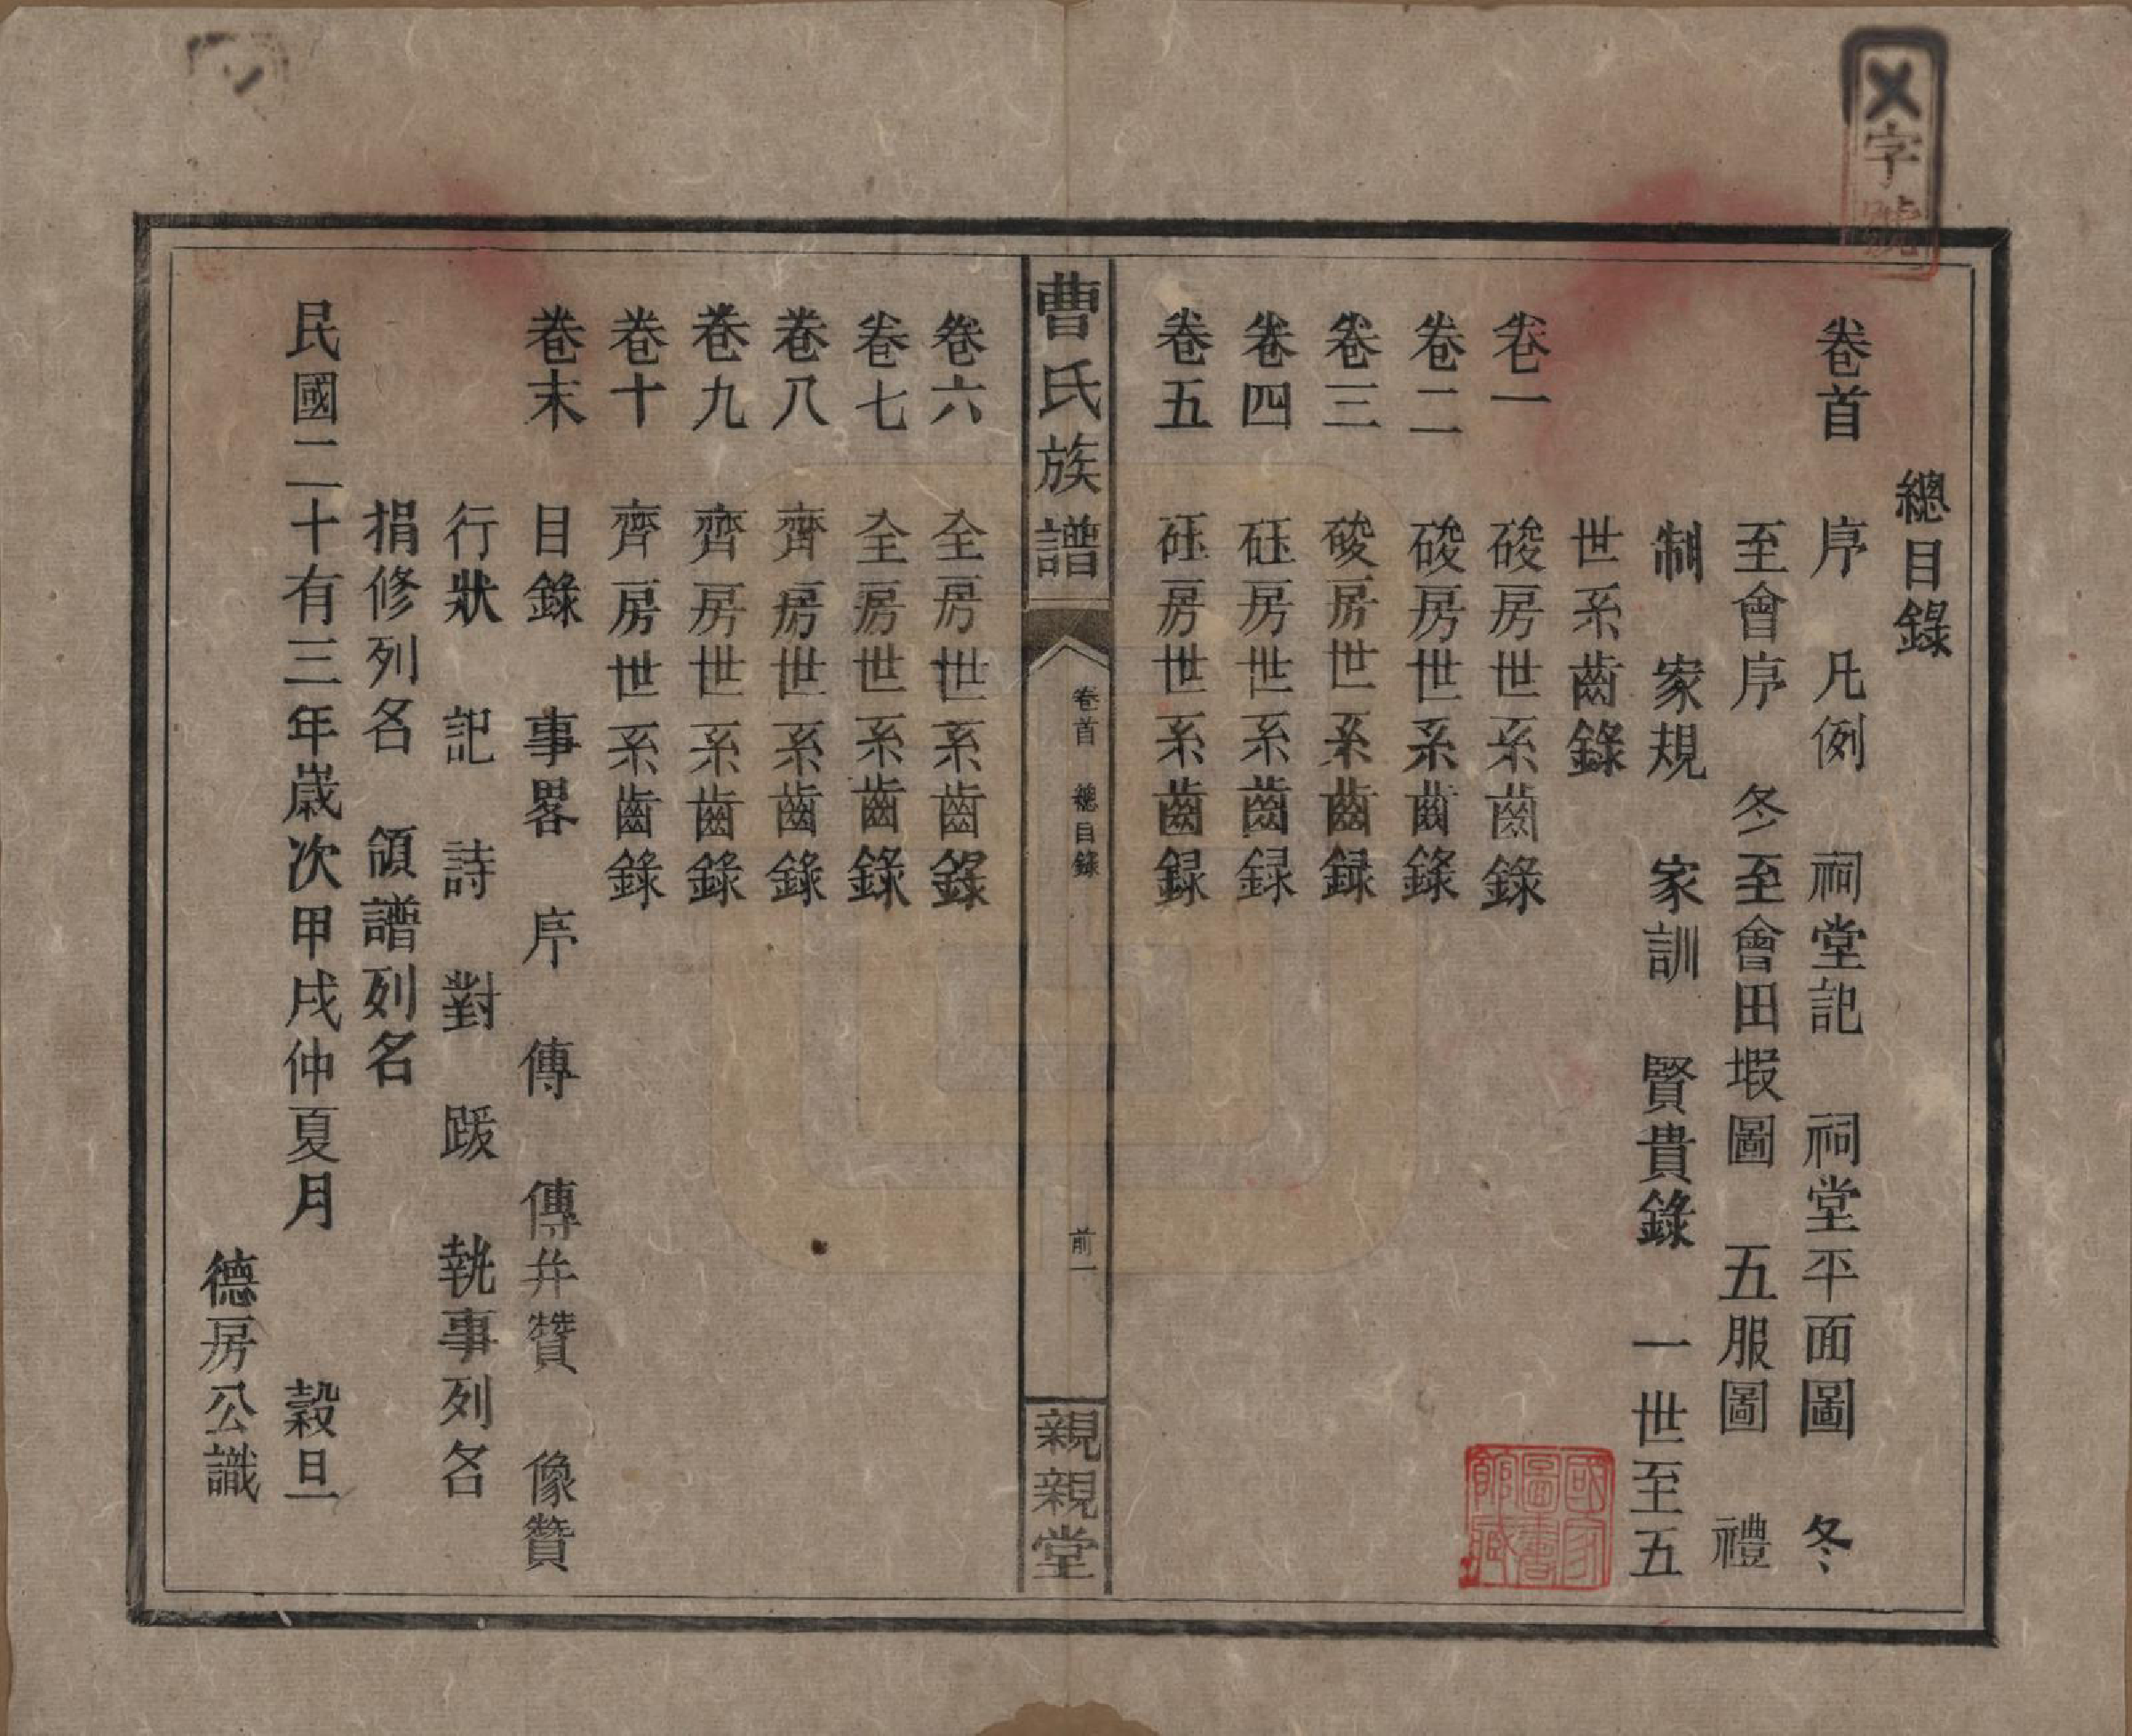 字號
總目錄
卷首 序 凡例 祠堂記 祠堂平面圖 冬
至會序 冬至會田塅圖 五服圖 禮
制 家規 家訓 賢貴錄 一世至五
世系齒錄
卷一 碐房世系齒錄
卷二 碐房世系齒錄
卷三 碐房世系齒録
卷四 砡房世系齒録
卷五 砡房世系齒録
曹氏族譜
卷首 總目錄
前一
親親堂
卷六 全房世系齒錄
卷七 全房世系齒錄
卷八 齊房世系齒錄
卷九 齊房世系齒錄
卷十 齊房世系齒錄
卷末 目錄 事畧 序 傳 傳并贊 像贊
行狀 記 詩 對 跋 執事列名
捐修列名 領譜列名
民國二十有三年歲次甲戌仲夏月 穀旦
德房公識
國家圖書館藏